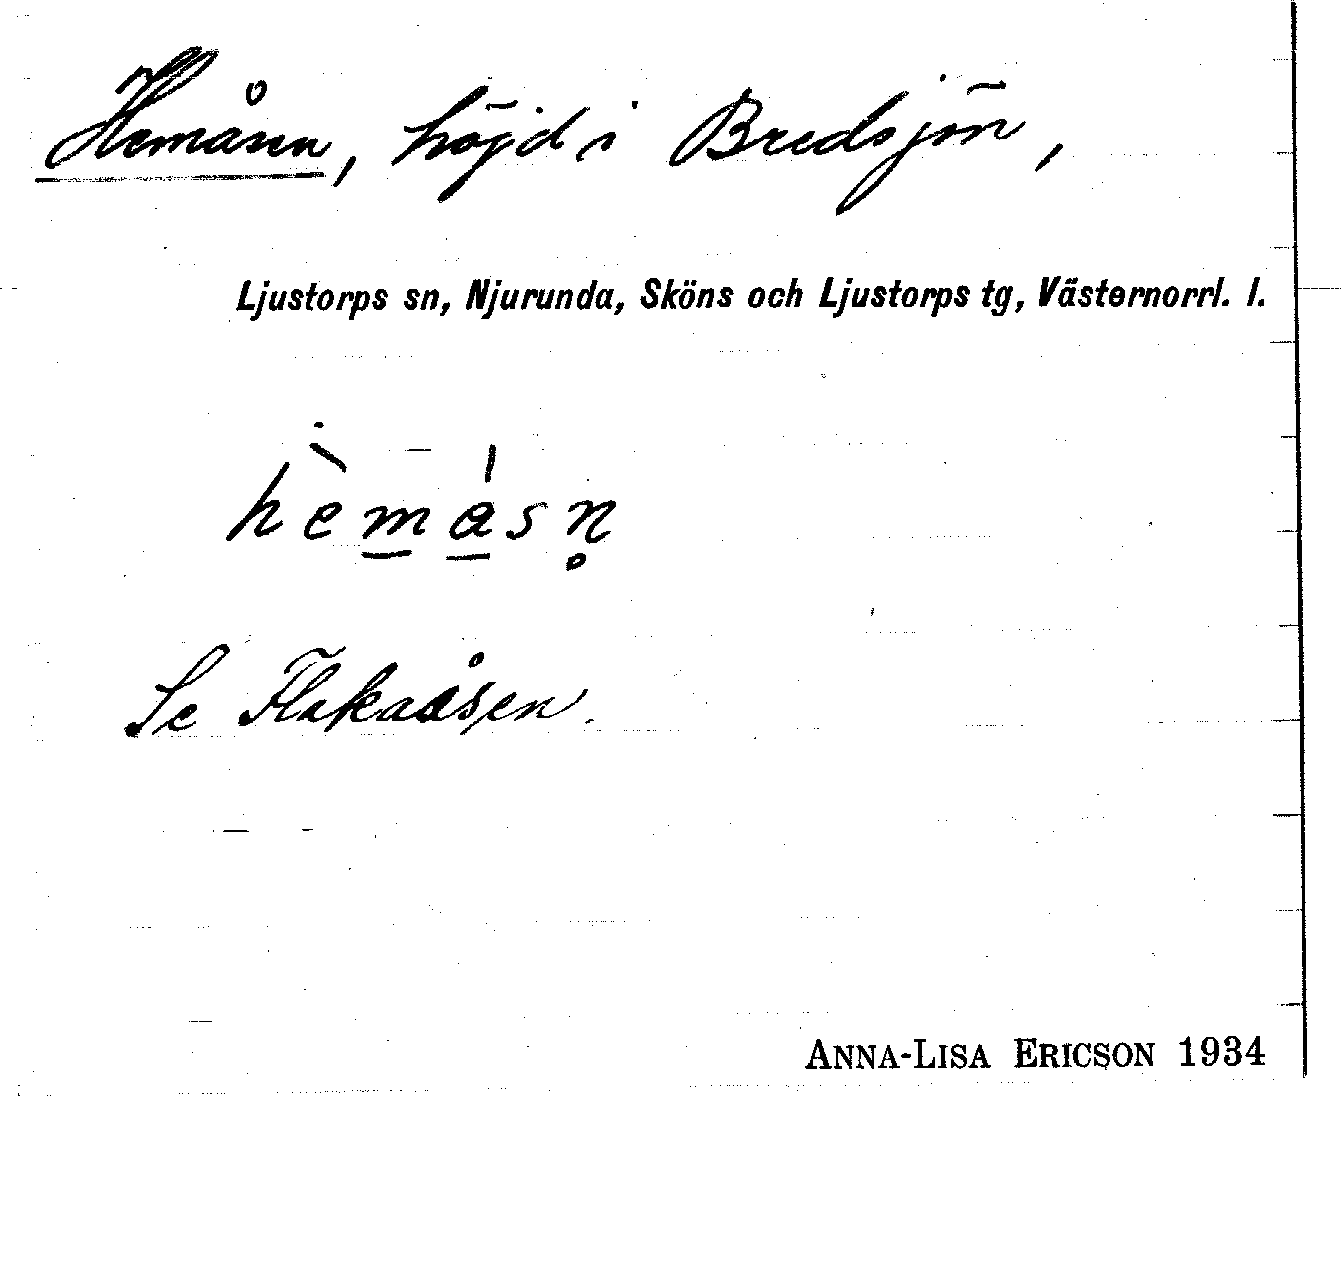 Hemåsen, höjd i Bredsjön,
Ljustorps sn, Njurunda, Sköns och Ljustorps tg, Västernorrl. l.
hèmásn̥
Se Flakaåsen.
ANNA-LISA ERICSON 1934